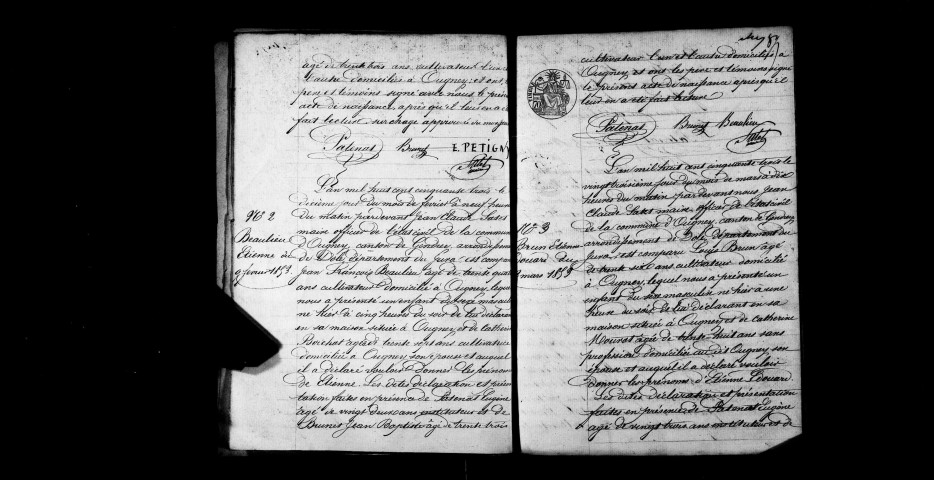 âgé de trente trois ans cultivateur l'un et
l'autre domiciliés à Ougney; et ont,
père et témoins signé avec nous le présent
acte de naissance, après qu'il leur en a
fait lecture, surchage approuvée du mot
Patenas Brunet E. PETIGNY
L'an mil huit cent cinquante trois le
dixième jour du mois de février à neuf heures
du matin pardevant Jean Claude
maire officier de l'état civil de la commune
d'Ougney, canton de Gendrey, arrondissement
de Dole, département du Jura est comparu
Jean François Beaulieu âgé de trente quatre
ans cultivateur domicilié à Ougney, lequel
nous a présenté un enfant du sexe masculin
né hier à cinq heures du soir de lui déclarant
en sa maison située à Ougney, et de Catherine
âgée de trente sept ans cultivatrice
domiciliée à Ougney son épouse et auquel
il a déclaré vouloir donner les prénoms
de Etienne. Les dites déclaration et présen
tation faites en présence de Patenas Eugène
âgé de vingt deux ans instituteur et de
Brunet Jean Baptiste âgé de trente trois
No 2
Beaulieu
Etienne du
9 février 1853.
cultivateur l'un et l'autre domiciliés à
Ougney et ont les père et témoins signé
le présent acte de naissance après qu'il
leur en a été fait lecture
Patenas Brunet Beaulieu
L'an mil huit cent cinquante trois le
vingt troisième jour du mois de mars à dix
heures du matin pardevant nous Jean
Claude maire officier de l'état civil
de la commune d'Ougney, canton de Gendrey
arrondissement de Dole, département du
Jura, est comparu Louis Brun âgé
de trente six ans cultivateur domicilié
à Ougney, lequel nous a présenté un
enfant du sexe masculin né hier à une
heure du soir de lui déclarant en sa
maison située à Ougney et de Catherine
âgée de trente huit ans sans
profession domiciliée au dit Ougney son
épouse et auquel il a déclaré vouloir
donner les prénoms d'Etienne Edouard.
Les dites déclaration et présentation
faites en présence de Patenas Eugène
âgé de vingt trois ans instituteur et de
No 3
Brun Etienne
Edouard du
mars 1853